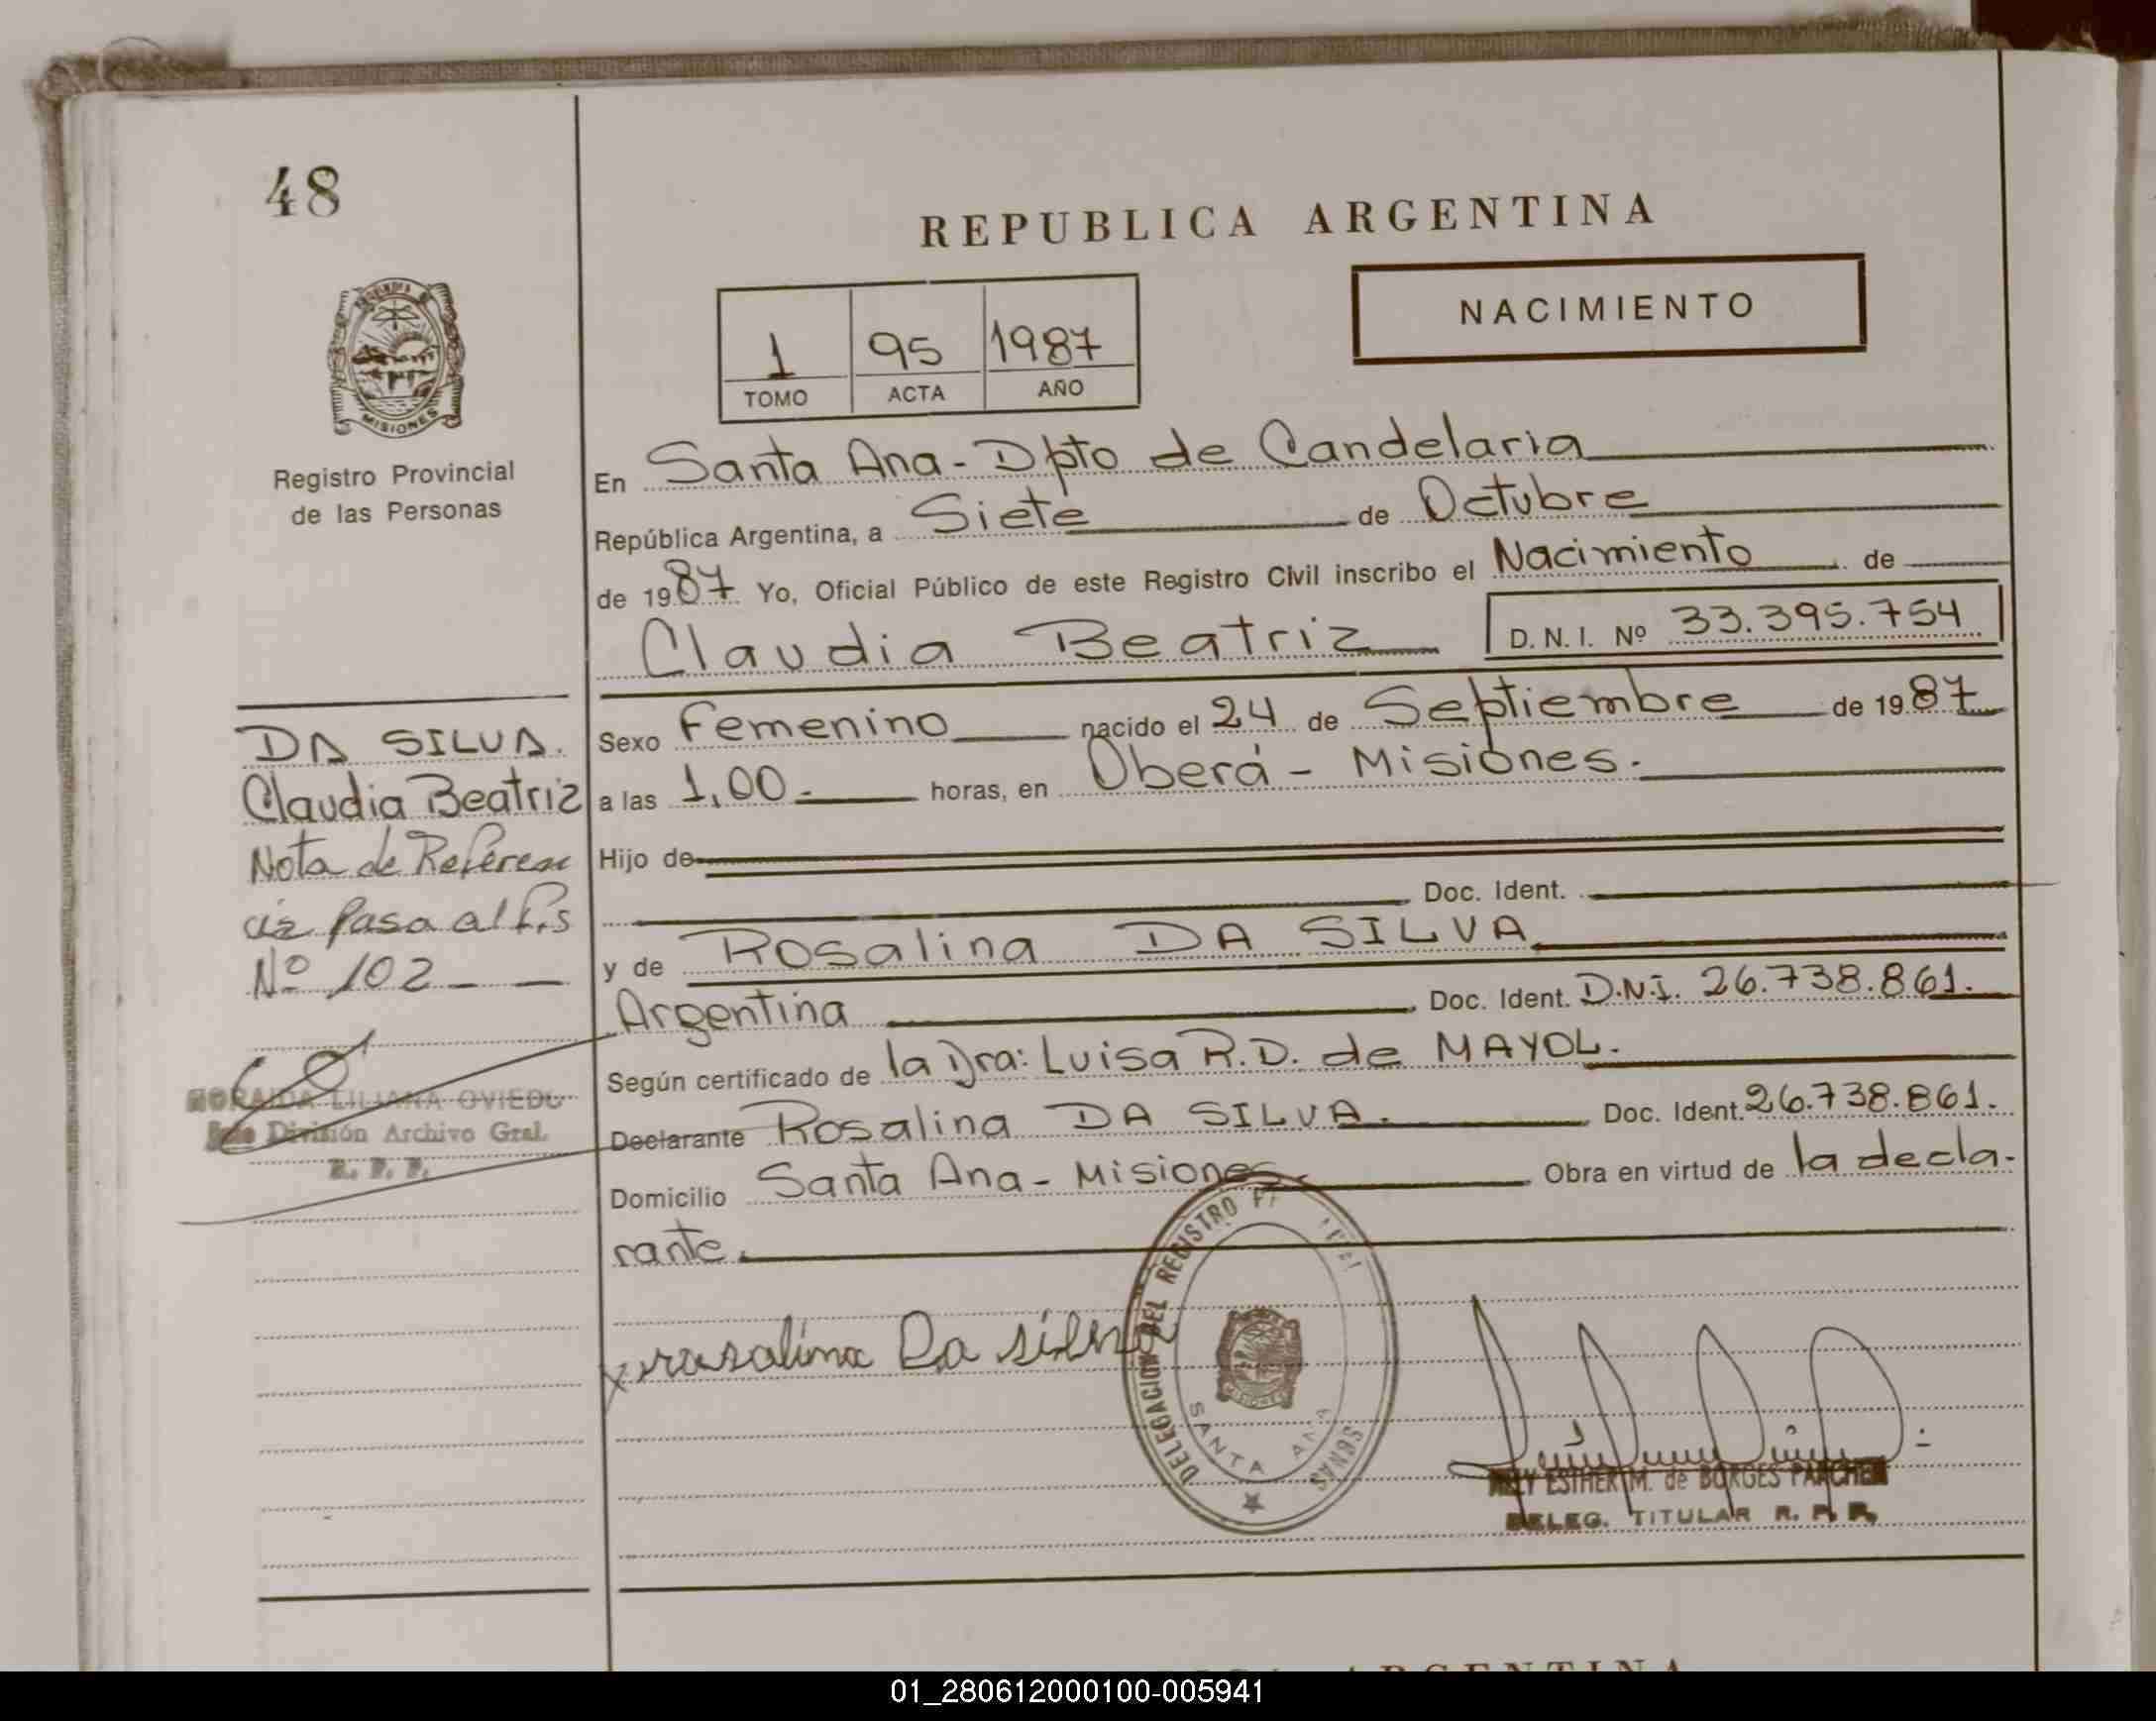 48
REPUBLICA ARGENTINA
NACIMIENTO
1 95 1987
TOMO ACTA AÑO
MISIONES
Registro Provincial
de las Personas
En Santa Ana - Dpto de Candelaria
República Argentina, a Siete de Octubre
de 1987 Yo, Oficial Público de este Registro Civil inscribo el Nacimiento de
Claudia Beatriz D. N. I. Nº 33.395.754
Sexo Femenino nacido el 24 de Septiembre de 1987
a las 1,00.- horas, en Oberá - Misiones.
Hijo de
Doc. Ident.
y de Rosalina DA SILVA
Argentina Doc. Ident. D.N.I. 26.738.861.
Según certificado de la Dra: Luisa R.D. de MAYOL.
Declarante Rosalina DA SILVA. Doc. Ident. 26.738.861.
Domicilio Santa Ana - Misiones. Obra en virtud de la decla-
rante.
DA SILVA.
Claudia Beatriz
Nota de Referen
cia Pasa al
Nº 102 - -
LILIANA OVIEDO
División Archivo Gral.
R. P. P.
x rosalina Da silva
DELEGACION DEL REGISTRO
SANTA ANA
MISIONES
ESTHER M. de BORGES PARCHEN
DELEG. TITULAR R. P. P.
ARGENTINA
01_280612000100-005941